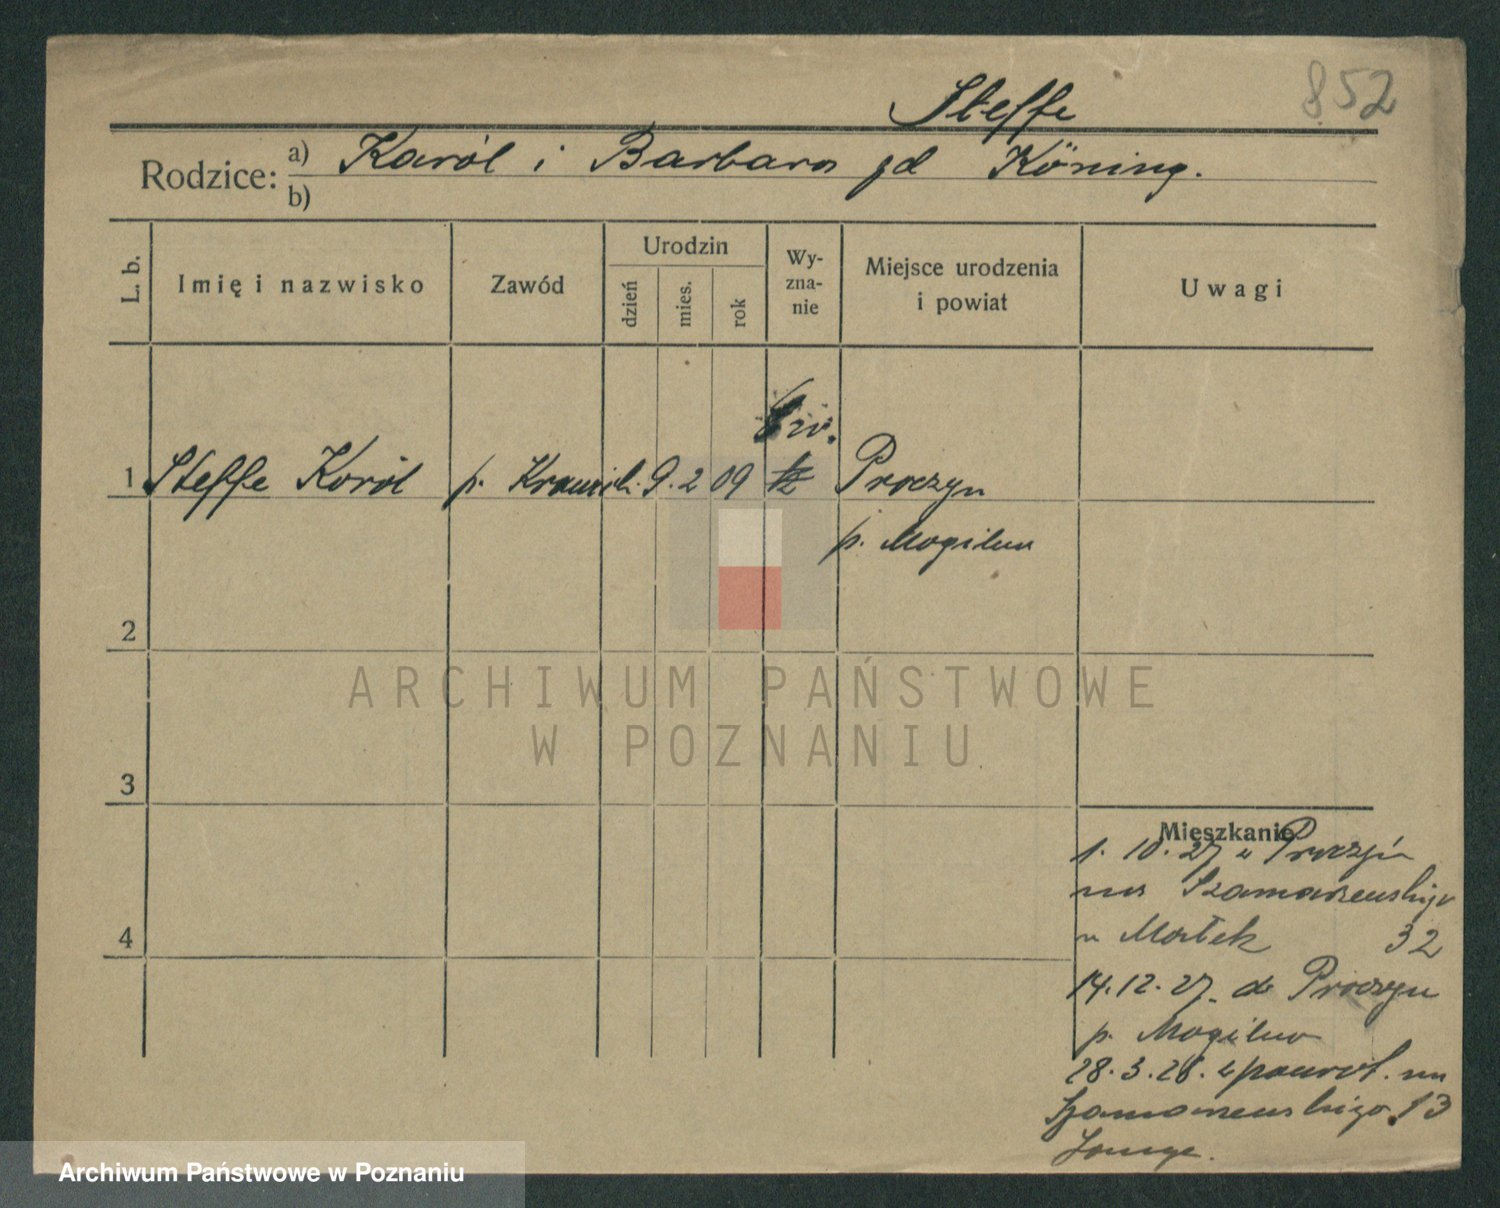 852
Steffe
Rodzice: a) Karól i Barbara zd Köning.
b)
L. b.
Imię i nazwisko
Zawód
Urodzin
dzień
mies.
rok
Wy-
zna-
nie
Miejsce urodzenia
i powiat
Uwagi
Ew.
1 Steffe Karól p. 9. 2 09 Proczyn
p. Mogilno
2
3
4
ARCHIWUM PAŃSTWOWE
W POZNANIU
Mieszkanie
1. 10. 27 z Proczyń
na Szamarzewskiego
u Małek 32
14. 12. 27. do Proczyn
p. Mogilno
28. 3. 28. z powrot. na
Szamarzewskiego 13
Lange.
Archiwum Państwowe w Poznaniu